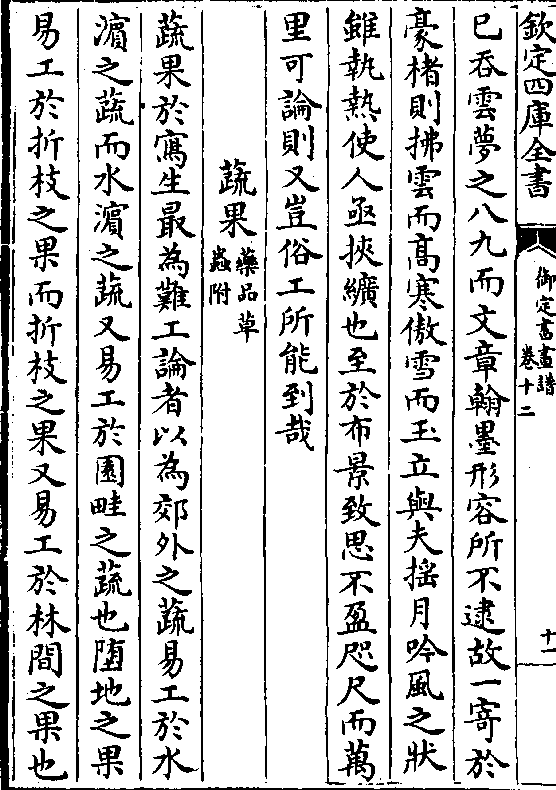 欽定四庫全書
御定書畫譜
卷十二
十一
已吞雲夢之八九而文章翰墨形容所不逮故一寄於
豪楮則拂雲而高寒傲雪而玉立與夫揺月吟風之狀
雖執熱使人亟挾纊也至於布景致思不盈咫尺而萬
里可論則又豈俗工所能到哉
蔬果藥品草
蟲附
蔬果於寫生最為難工論者以為郊外之蔬易工於水
濵之蔬而水濵之蔬又易工於園畦之蔬也墮地之果
易工於折枝之果而折枝之果又易工於林間之果也